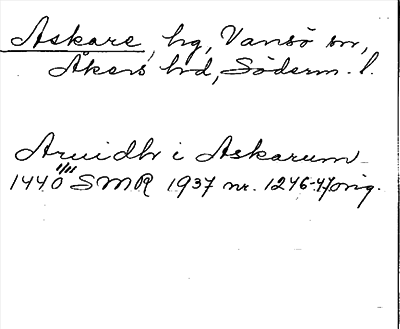 Askare, hg, Vansö sn,
Åkers hd, Söderm. l.
Arvidh i Askarum
1440 11/11 SMR 1937 nr. 1246-47, orig.